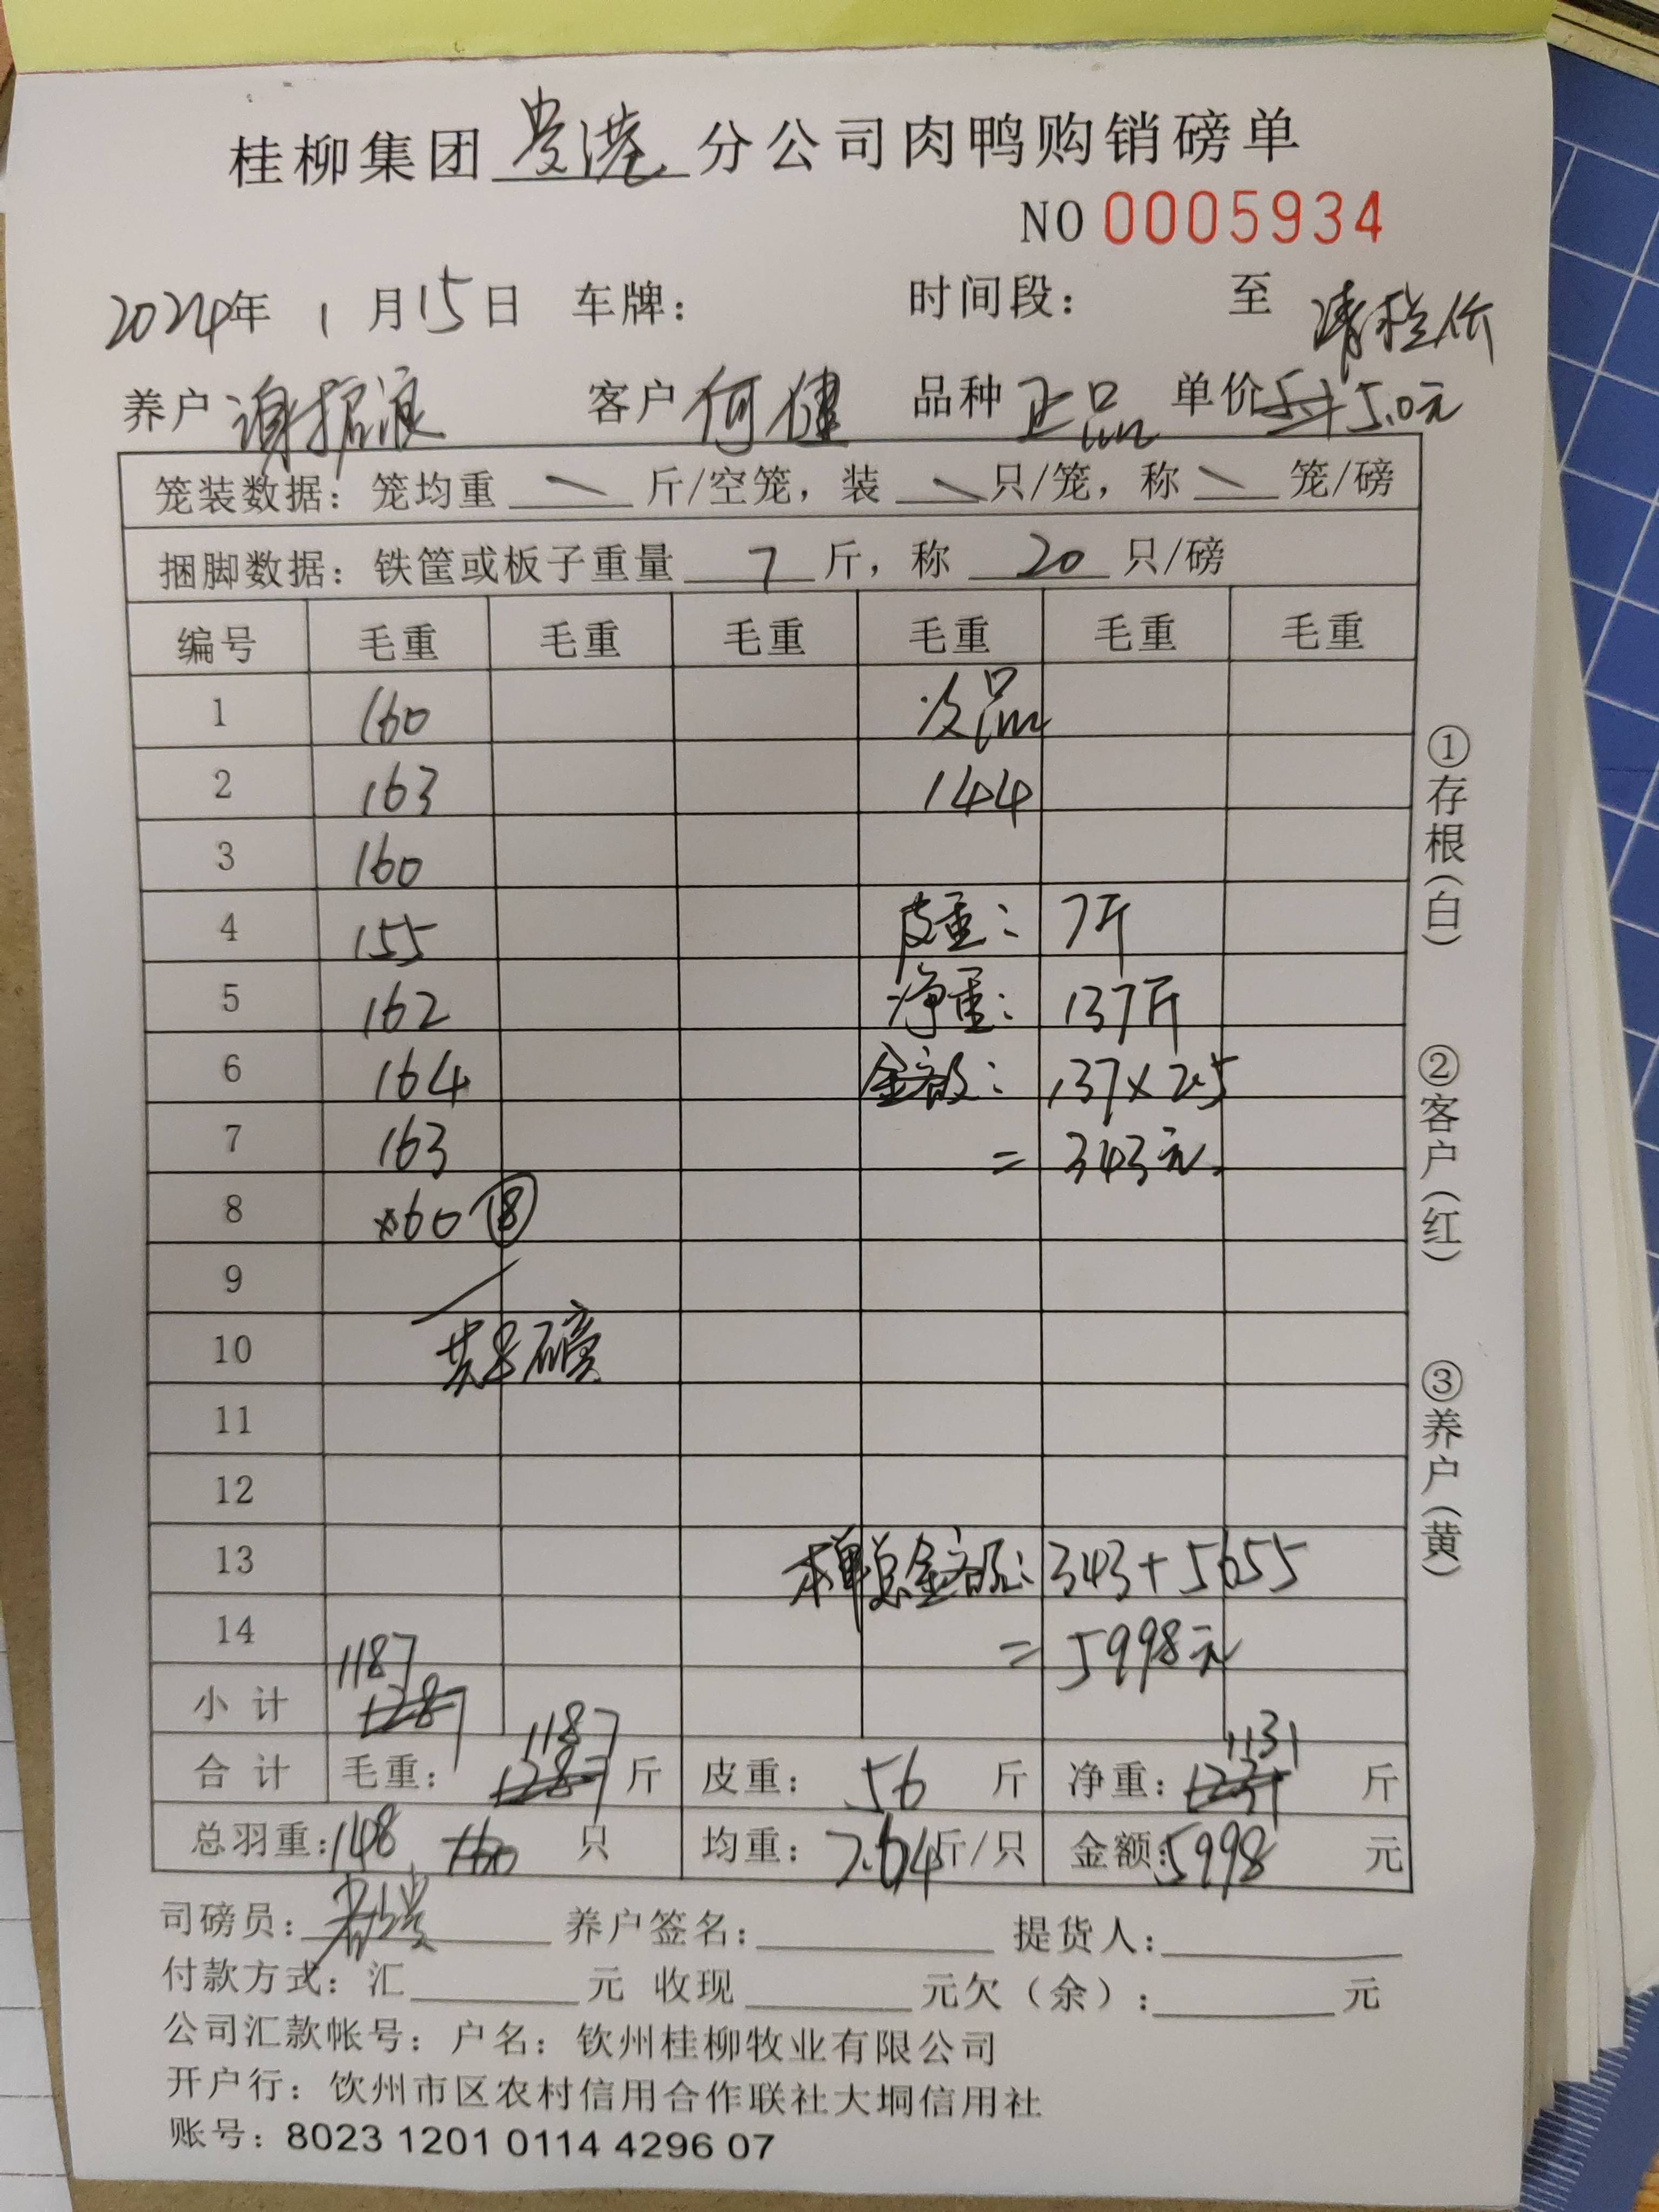 桂柳集团 贵港 分公司肉鸭购销磅单
NO 0005934
2024年 1 月 15 日 车牌: 时间段: 至
养户 客户 何健 品种 正品 单价 5.0元
笼装数据: 笼均重 斤/空笼, 装 只/笼, 称 笼/磅
捆脚数据: 铁筐或板子重量 7 斤, 称 20 只/磅
编号 毛重 毛重 毛重 毛重 毛重 毛重
1 160 次品
2 163 144
3 160
4 155 皮重: 7斤
5 162 净重: 137斤
6 164 金额: 137×2.5
7 163 = 343元
8 60 ⑧
9
10 共8磅
11
12
13 本单总金额: 343+5655
14 = 5998元
1187
小计 1287
1187 1131
合计 毛重: 1287 斤 皮重: 56 斤 净重: 1231 斤
总羽重: 148 160 只 均重: 7.64 斤/只 金额: 5998 元
司磅员: 养户签名: 提货人:
付款方式: 汇 元 收现 元欠(余): 元
公司汇款帐号: 户名: 钦州桂柳牧业有限公司
开户行: 饮州市区农村信用合作联社大垌信用社
账号: 8023 1201 0114 4296 07
①存根(白)
②客户(红)
③养户(黄)